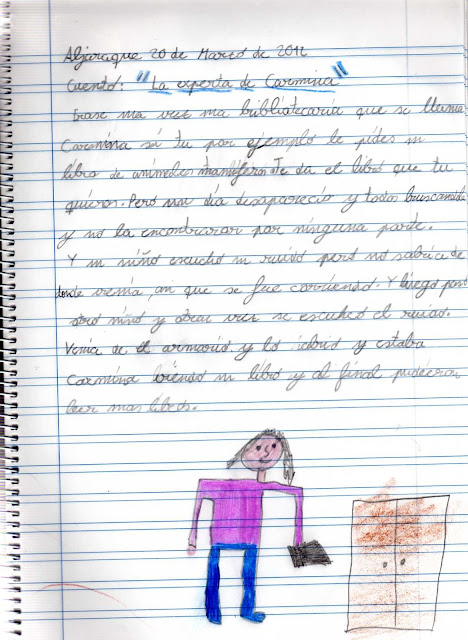 Aljaraque 20 de Marzo de 2012
Cuento: "La experta de Carmina"
Erase una vez una bibliotecaria que se llama
Carmina si tu por ejemplo le pides un
libro de animales mamiferos Te da el libro que tu
quieras. Pero un dia desaparecio y todos buscando
y no la encontraron por ninguna parte.
Y un niño escucho un ruido pero no sabria de
donde venia, an que se fue corriendo. Y luego paso
otro niño y otra vez se escuchó el ruido.
Venia de el armario y lo abrio y estaba
Carmina leiendo un libro y al final pudieron
leer mas libros.